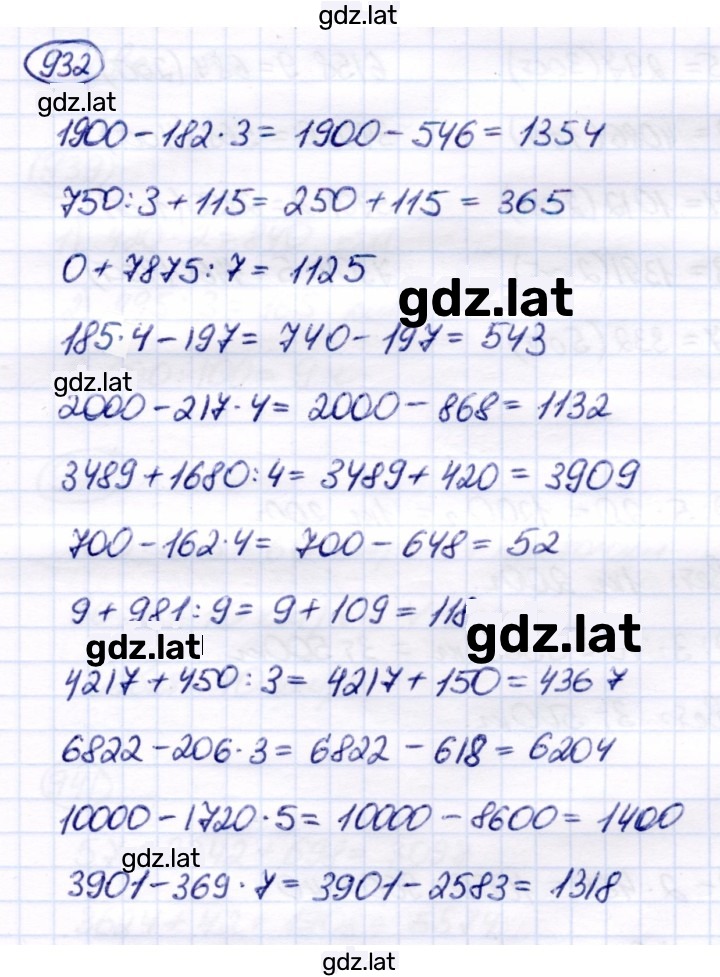 gdz.lat
932
gdz.lat
1900 - 182 · 3 = 1900 - 546 = 1354
750 : 3 + 115 = 250 + 115 = 365
0 + 7875 : 7 = 1125
gdz.lat
185 · 4 - 197 = 740 - 197 = 543
gdz.lat
2000 - 217 · 4 = 2000 - 868 = 1132
3489 + 1680 : 4 = 3489 + 420 = 3909
700 - 162 · 4 = 700 - 648 = 52
9 + 981 : 9 = 9 + 109 = 118
gdz.lat
gdz.lat
4217 + 450 : 3 = 4217 + 150 = 4367
6822 - 206 · 3 = 6822 - 618 = 6204
10000 - 1720 · 5 = 10000 - 8600 = 1400
gdz.lat
3901 - 369 · 7 = 3901 - 2583 = 1318
gdz.lat